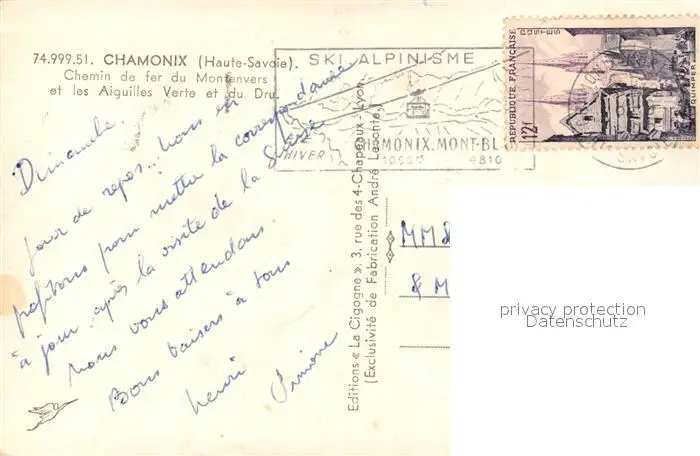 74.999.51. CHAMONIX (Haute-Savoie).
Chemin de fer du Montenvers
et les Aiguilles Verte et du Dru.
Dimanche.
Jour de repos.. Nous en
profitons pour mettre la correspondance
"à jour" après la visite de la Suisse
Nous vous attendons.
Bons baisers à tous
Henri
Simone
Editions « La Cigogne », 3, rue des 4-Chapeaux - Lyon
(Exclusivité de Fabrication André Leconte.)
SKI ALPINISME
HIVER
CHAMONIX. MONT-BL
1050M 4810
REPUBLIQUE FRANÇAISE
POSTES
12f
QUIMPER
MM
& M
privacy protection
Datenschutz